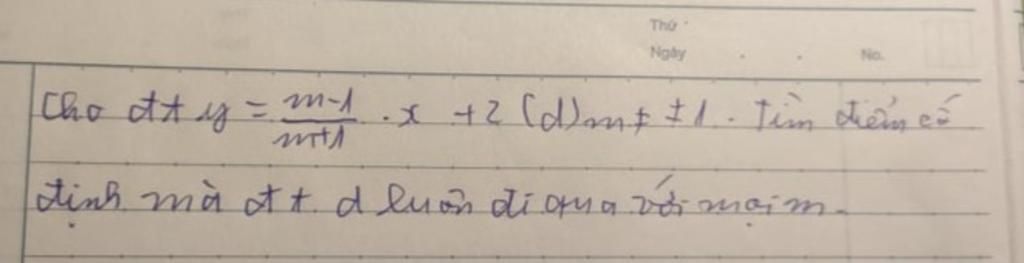 Thứ
Ngày . . No.
Cho đt y = \frac{m-1}{m+1} . x + 2 (d) m ≠ ±1. Tìm điểm cố
định mà đt d luôn đi qua với mọi m.